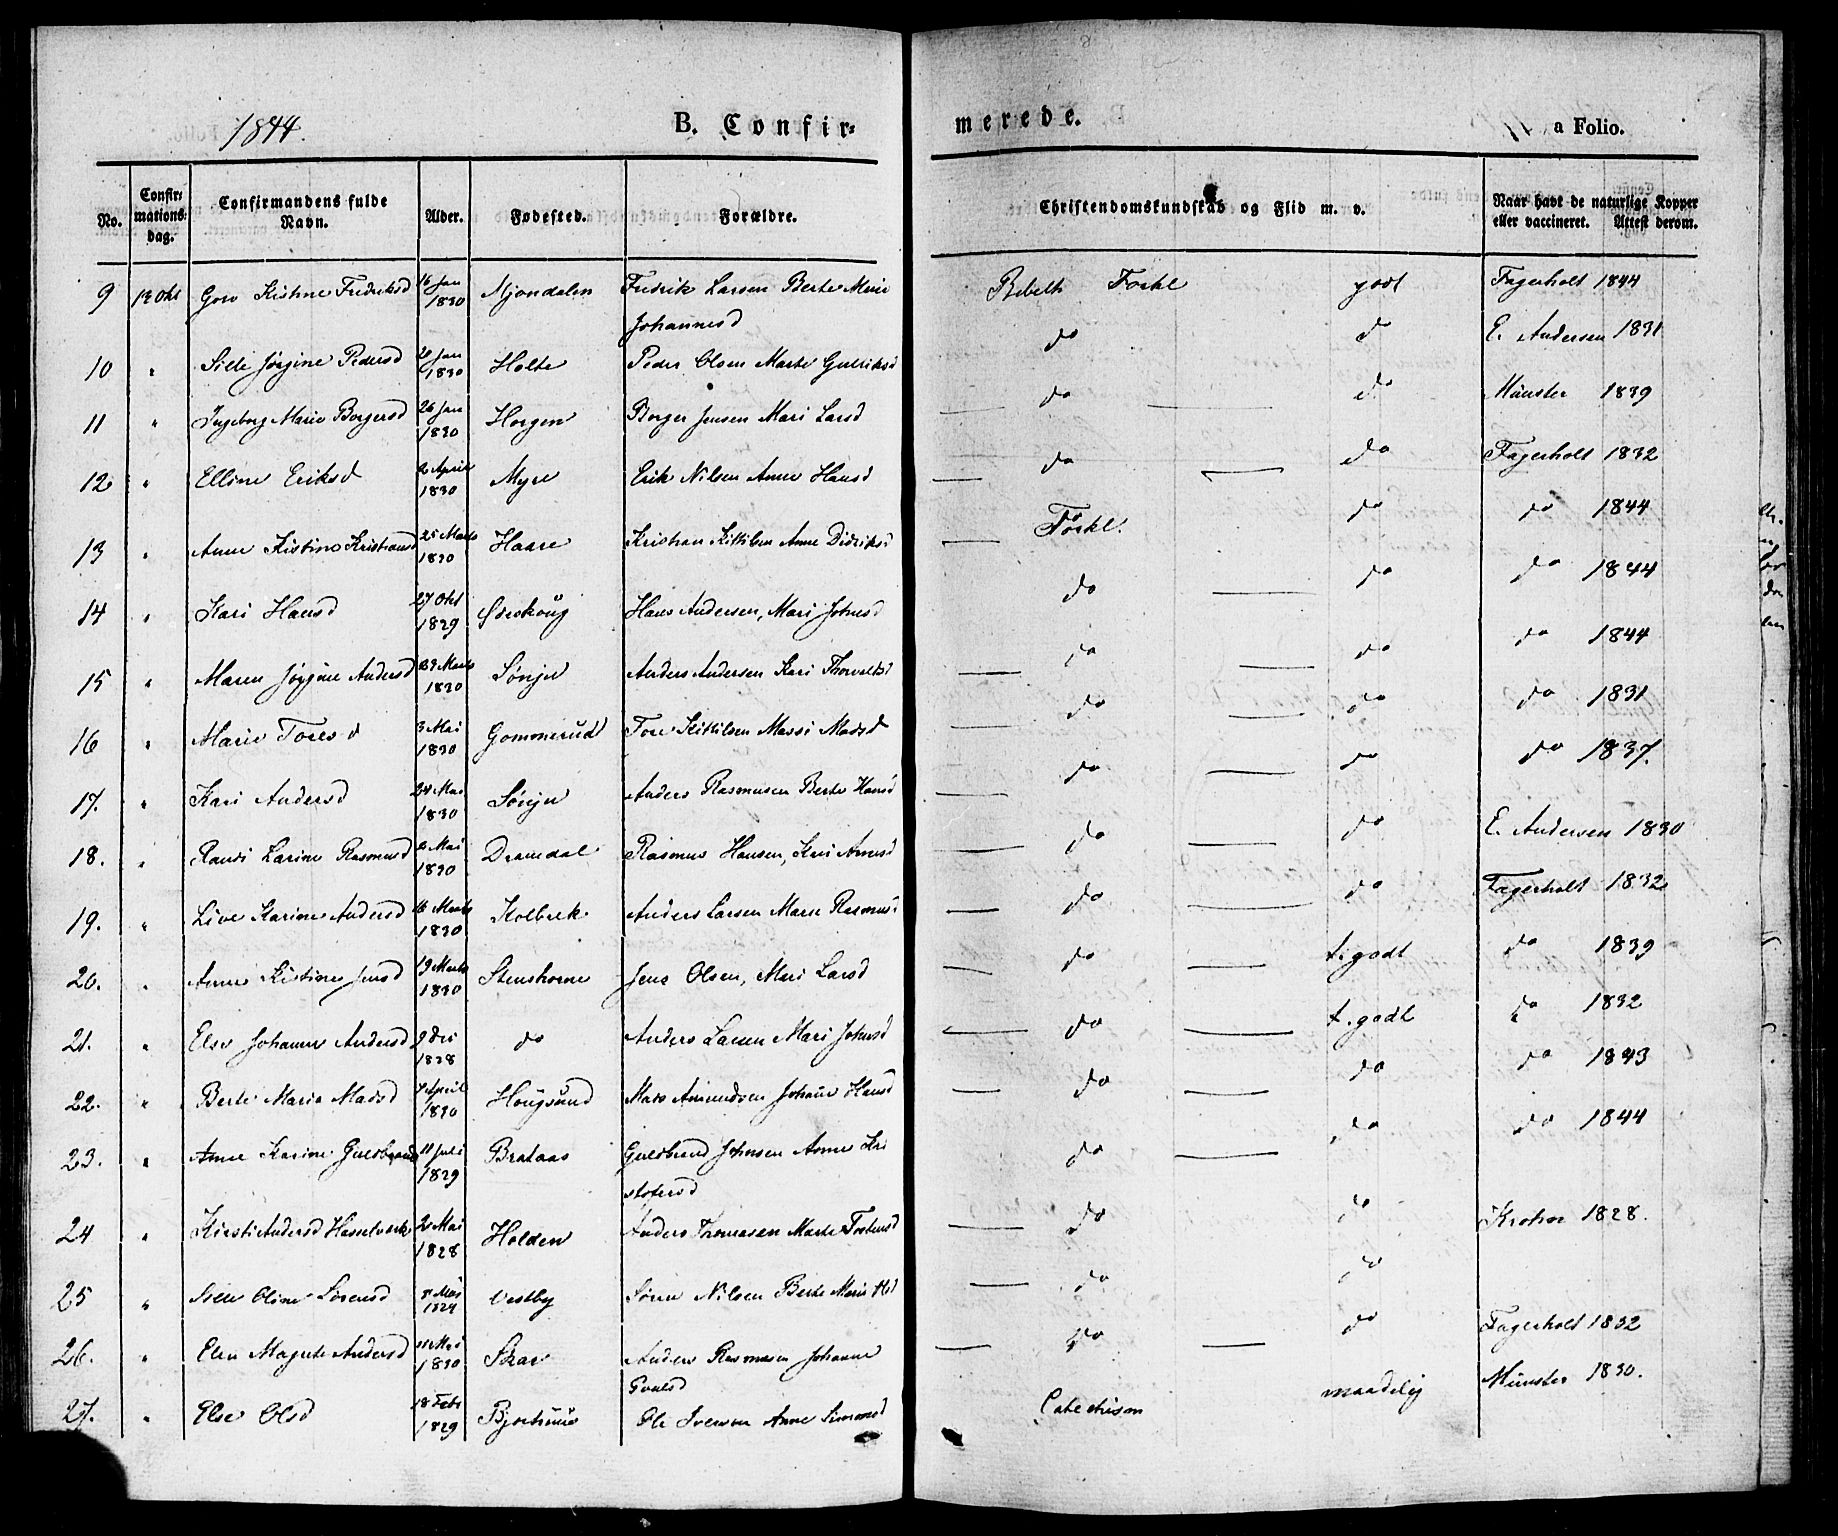 1844.
B. Confir=
merede.
a Folio.
No.
Confir=
mations=
dag.
Confirmandens fulde
Navn.
Alder.
Fødested.
Forældre.
Christendomskundskab og Flid m. v.
Naar havt de naturlige Kopper
eller vaccineret. Attest derom.
9 13 Okt Goro Kistine Fredriksd 16 Jan 1830 Mjøndalen Fredrik Larsen Berte Marie
Johannesd
Forkl godt Fagerholt 1844
10 " Sille Jørgine Pedersd Jan 1830 Holte Peder Olsen Marte Gulriksd
do do E. Andersen 1831
11 " Ingeborg Marie Borgersd 26 Jan 1830 Horgen Borger Jensen Mari Larsd
do do Münster 1839
12 " Elline Eriksd April 1830 Myre Erik Nilsen Anne Hansd
do do Fagerholt 1832
13 " Anne Kistine Kristiansd 25 Marts 1830 Haare Kristian Kittilsen Anne Didriksd
do Forkl. do do 1844
14 " Kari Hansd 27 Okt 1829 Hans Andersen, Mari Johnsd
do do do 1844
15 " Maren Jørgine Andersd Marts 1830 Sønju Anders Andersen Kari Thorvaldsd
do do do 1844
16 " Marie Toresd 3 Mai 1830 Gommerud Tore Kittilsen Massi Madsd
do do do 1831
17. " Kari Andersd 24 Mai 1830 Sønju Anders Rasmusen Berte Hansd
do do do 1837.
18. " Randi Larine Rasmusd Mai 1830 Dramdal Rasmus Hansen, Kari Arnesd
do do E. Andersen 1830
19. " Live Karine Andersd 16 Marts 1830 Kolbrek Anders Larsen Maren Rasmusd
do do Fagerholt 1832
20. " Anne Kistine Jensd 19 Marts 1830 Stenshorne Jens Olsen, Mari Larsd
do t. godt do 1839
21. " Else Johanne Andersd 9 1828 do Anders Larsen Mari Johnsd
do t. godt do 1832
22. " Berte Marie Madsd April 1830 Hougsund Mads Amundsen Johanne Hansd
do do do 1843
23. " Anne Karine Guldbrandsd 11 Juli 1829 Brataas Guldbrand Johnsen Anne Kri
stofersd
do do do 1844
24 " Kirsti Andersd Hasselverk 2 Mai 1828 Holden Anders Thomasen Marte Torstensd
do do Krohn 1828.
25 " Sille Oline Sørensd 1829 Vestby Søren Nilsen Berte Marie
do do
26. " Elen Magrete Andersd Mai 1830 Skar Anders Rasmusen Johanne
do do Fagerholt 1832
27. " Else Olsd 18 Febr 1829 Ole Iversen Anne Simensd
Catechism maadelig Münster 1830.